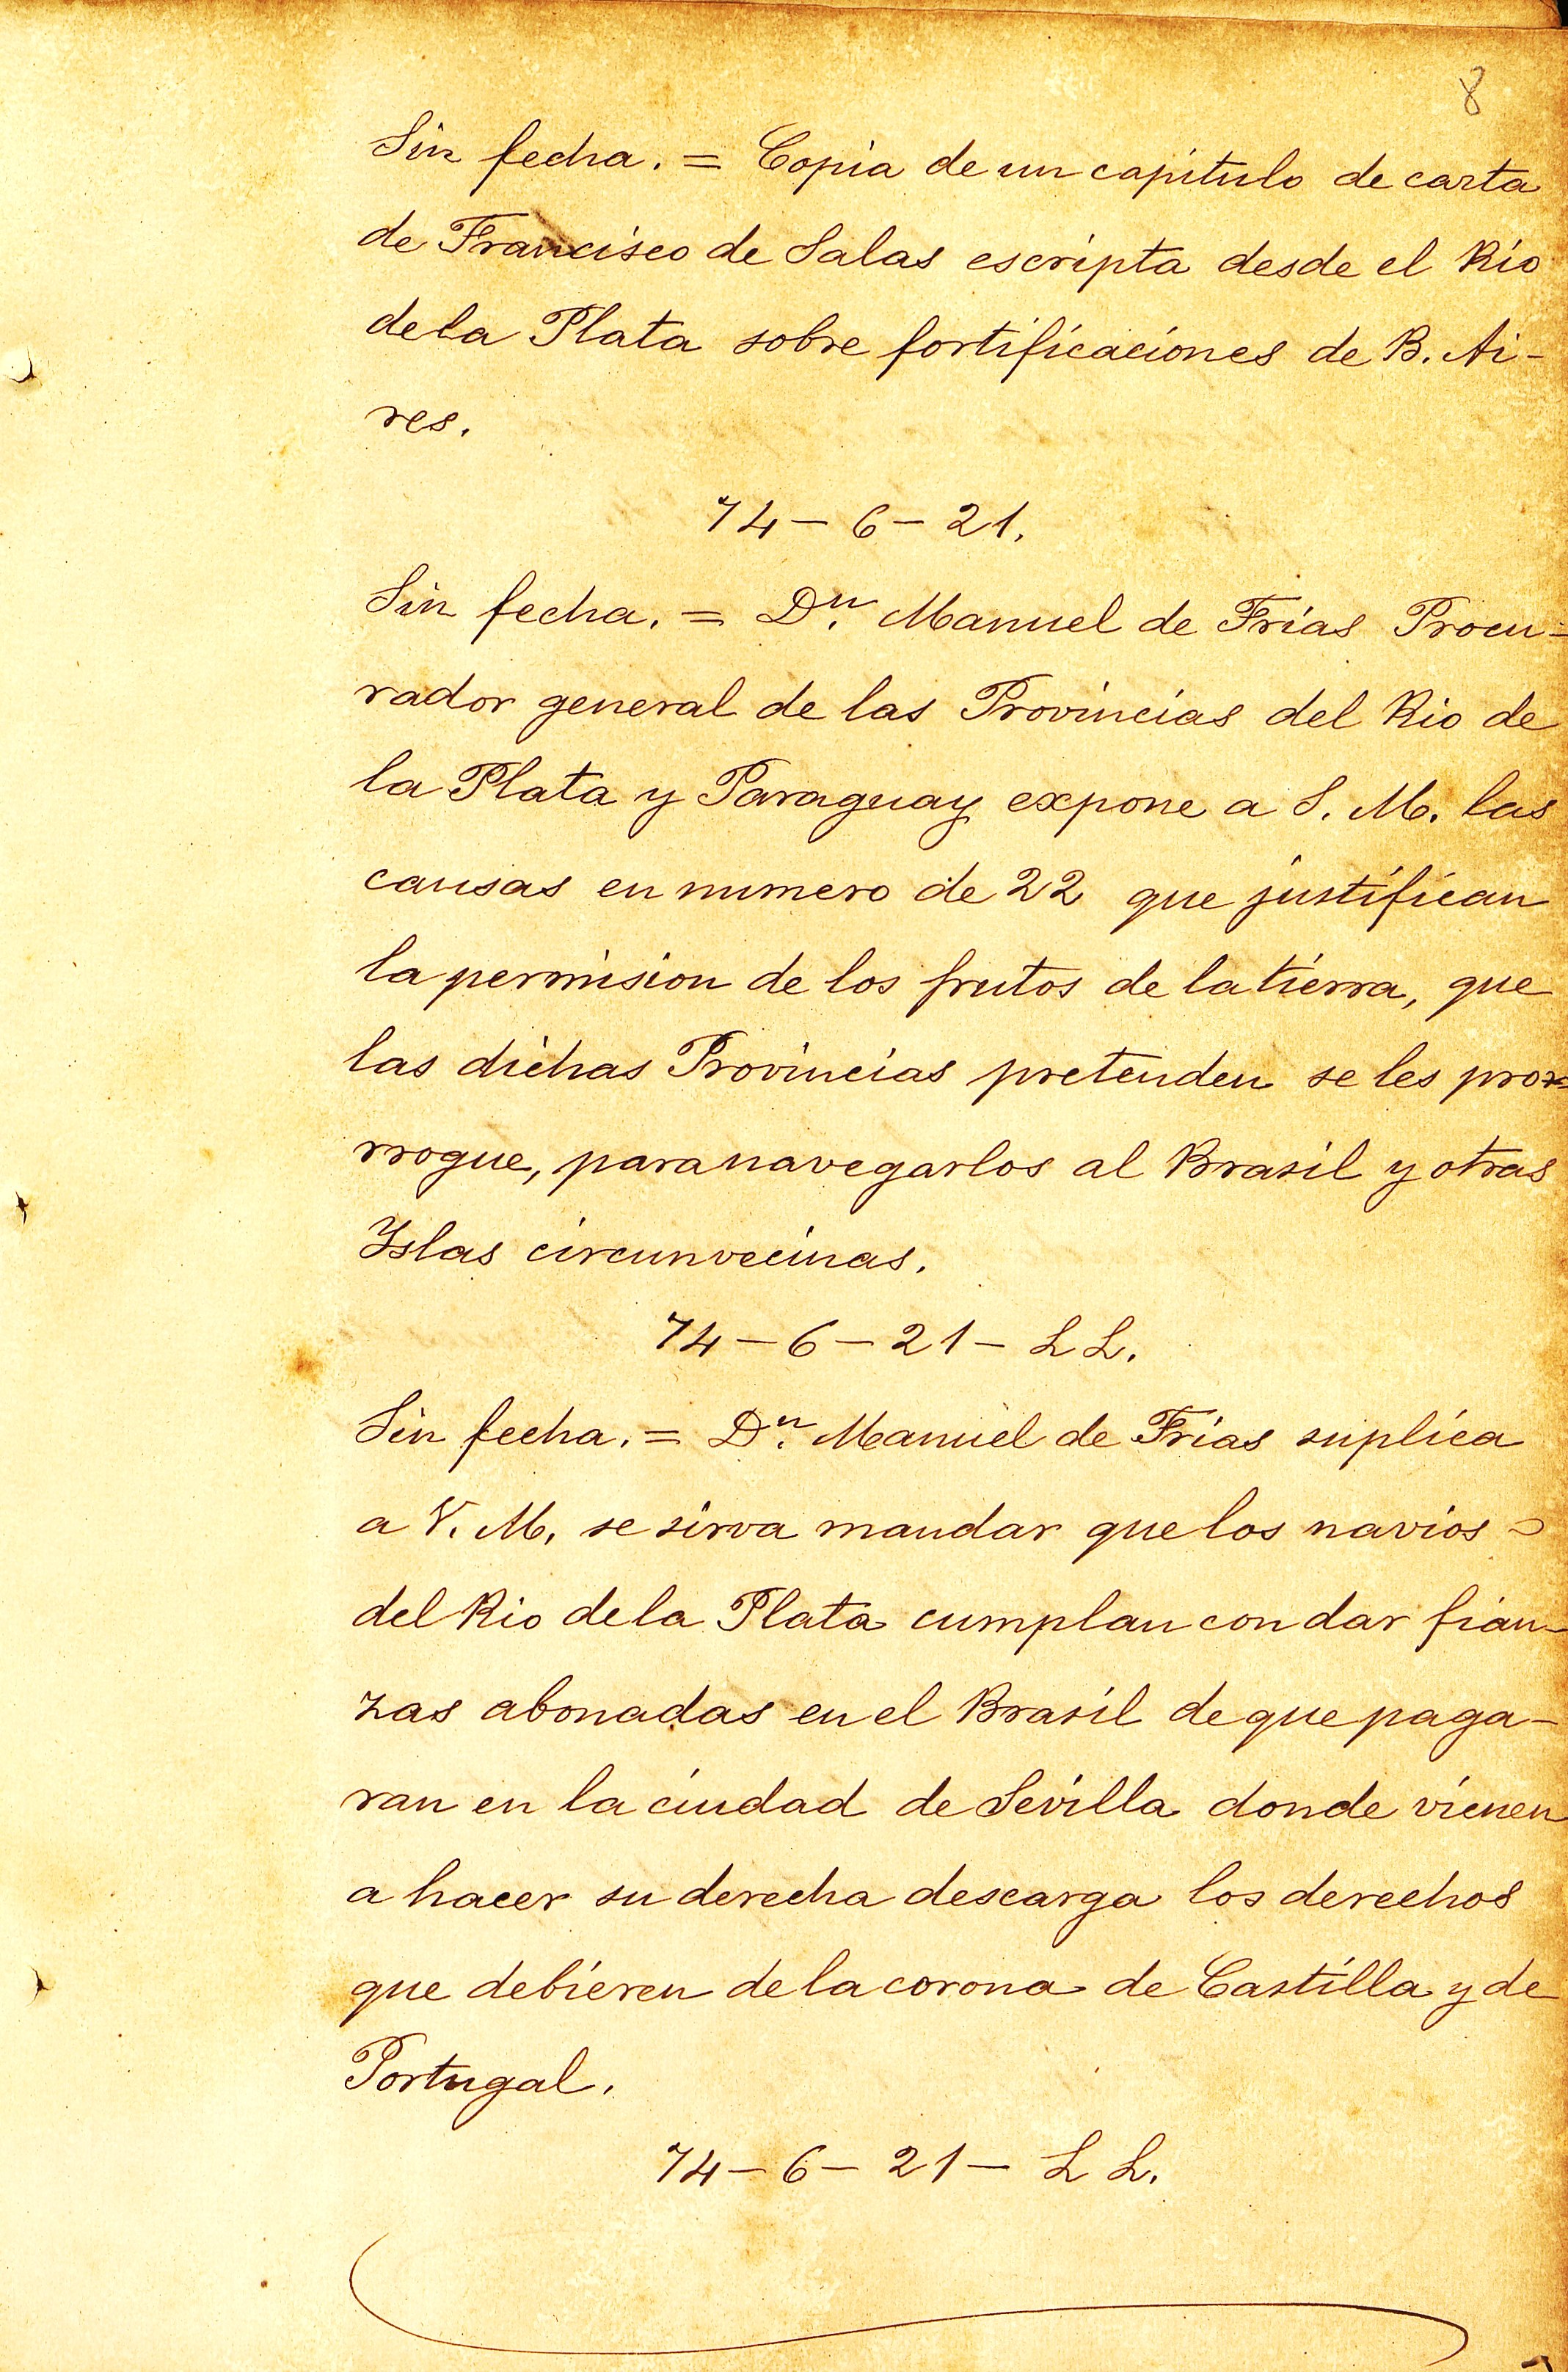 8
Sin fecha. = Copia de un capitulo de carta
de Francisco de Salas escripta desde el Rio
de la Plata sobre fortificaciones de B. Ai-
res.
74 - 6 - 21.
Sin fecha. = Dn. Manuel de Frías Procu=
rador general de las Provincias del Rio de
la Plata y Paraguay expone a S. M. las
causas en numero de 22 que justifican
la permision de los frutos de la tierra, que
las dichas Provincias pretenden se les pror=
rrogue, para navegarlos al Brasil y otras
Islas circunvecinas.
74 - 6 - 21 - LL.
Sin fecha. = Dn. Manuel de Frias suplica
a V. M. se sirva mandar que los navios
del Rio de la Plata cumplan con dar fian-
zas abonadas en el Brasil de que paga-
ran en la ciudad de Sevilla donde vienen
a hacer su derecha descarga los derechos
que debieren de la corona de Castilla y de
Portugal.
74 - 6 - 21 - L L.